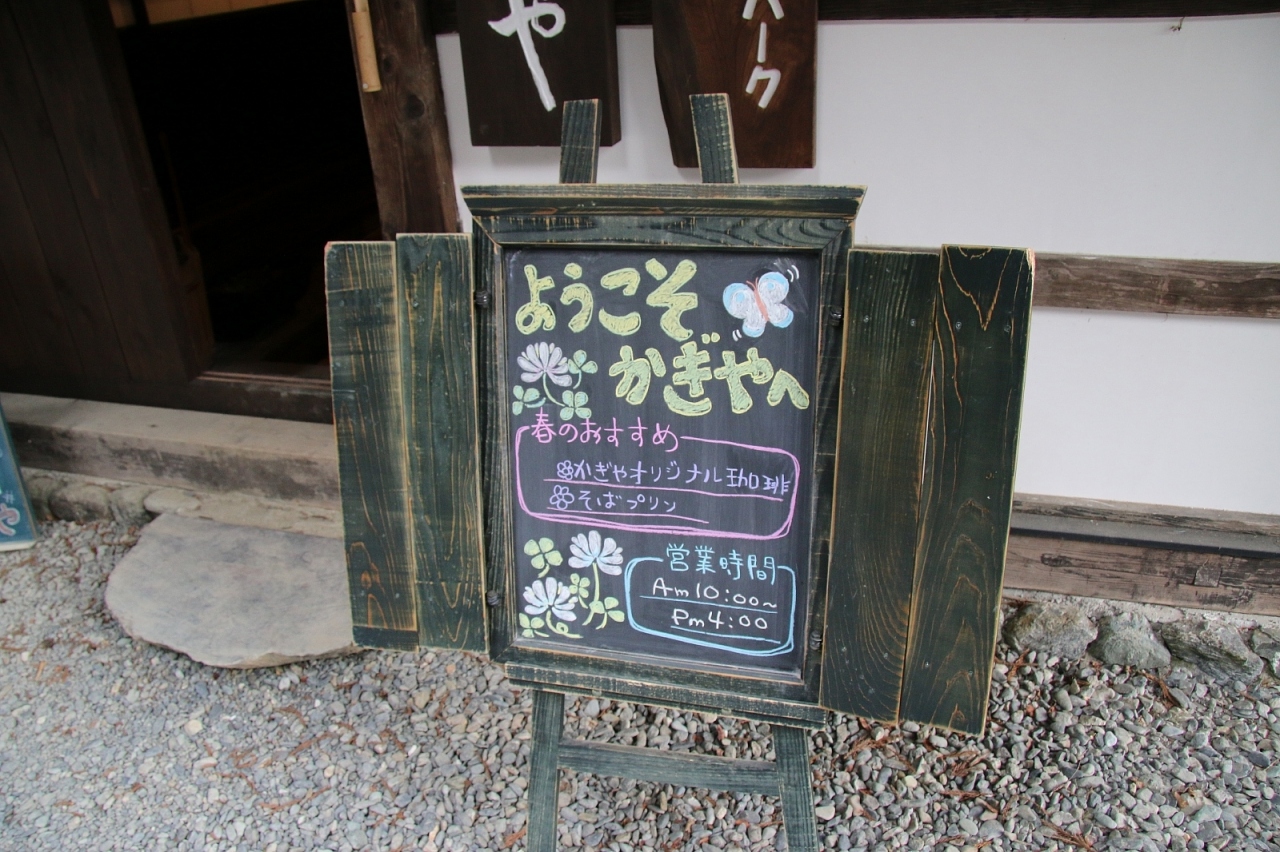 や
ーク
ようこそ
かぎやへ
春のおすすめ
かぎやオリジナル珈琲
そばプリン
営業時間
Am10:00~
Pm4:00
や